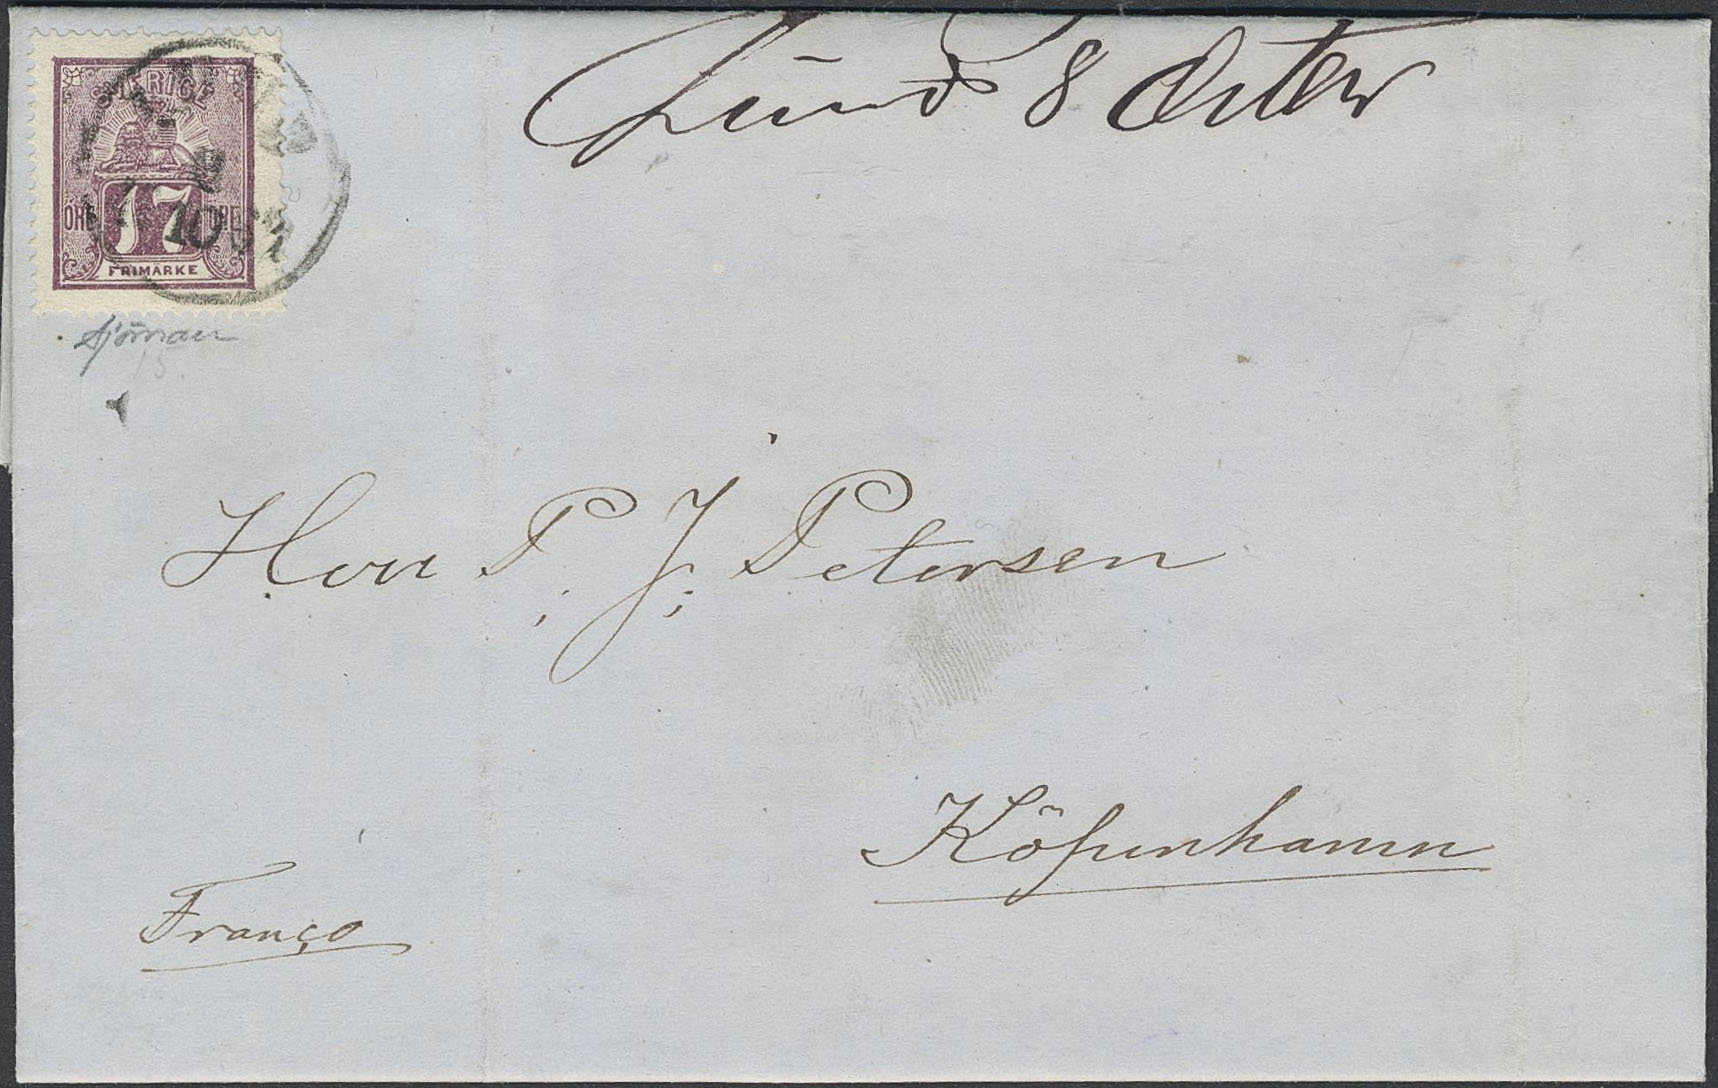 Lund 8 Octbr
SVERIGE
ÖRE 17 ÖRE
FRIMÄRKE
10
Sjöman
Herr P. J. Petersen
Köpenhamn
Franco